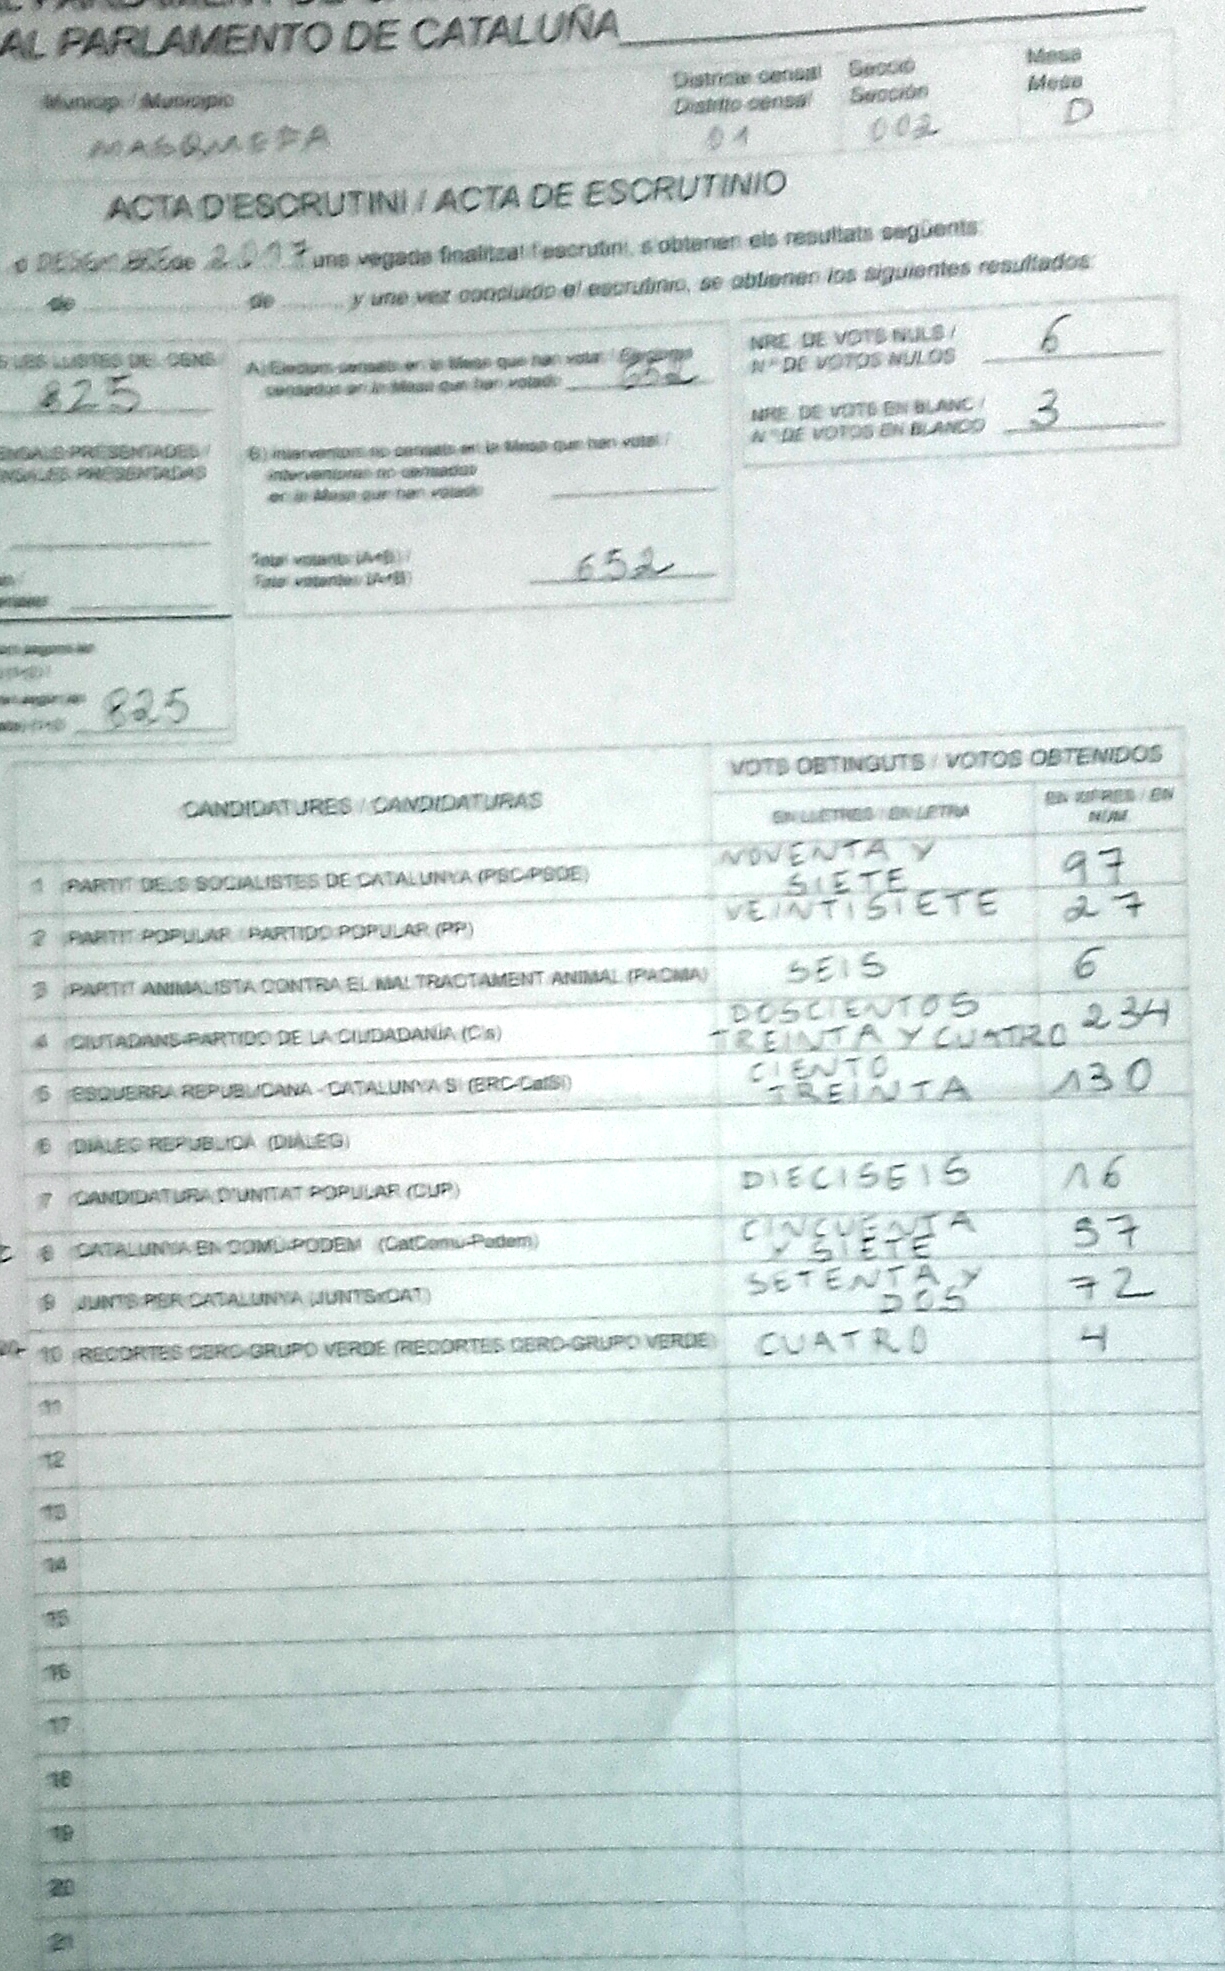 AL PARLAMENTO DE CATALUÑA
Municipi / Municipio
Districte censal
Distrito censal
Secció
Sección
Mesa
Mesa
MASQUEFA
01
002
D
ACTA D'ESCRUTINI / ACTA DE ESCRUTINIO
DESEMBRE de 2017 una vegada finalitzat l'escrutini, s'obtenen els resultats següents:
de de y una vez concluido el escrutinio, se obtienen los siguientes resultados:
LES LLISTES DEL CENS
825
PRESENTADES /
PRESENTADAS
825
A) Electors censats en la Mesa que han votat / Electores
censados en la Mesa que han votado 652
B) Interventors no censats en la Mesa que han votat /
Interventores no censados
en la Mesa que han votado
Total votants (A+B) /
Total votantes (A+B) 652
NRE. DE VOTS NULS /
Nº DE VOTOS NULOS 6
NRE. DE VOTS EN BLANC /
Nº DE VOTOS EN BLANCO 3
CANDIDATURES / CANDIDATURAS
VOTS OBTINGUTS / VOTOS OBTENIDOS
EN LLETRES / EN LETRA
EN XIFRES / EN
NÚM.
1 PARTIT DELS SOCIALISTES DE CATALUNYA (PSC-PSOE) NOVENTA Y SIETE 97
2 PARTIT POPULAR / PARTIDO POPULAR (PP) VEINTISIETE 27
3 PARTIT ANIMALISTA CONTRA EL MALTRACTAMENT ANIMAL (PACMA) SEIS 6
4 CIUTADANS-PARTIDO DE LA CIUDADANÍA (C's) DOSCIENTOS TREINTA Y CUATRO 234
5 ESQUERRA REPUBLICANA - CATALUNYA SÍ (ERC-CatSí) CIENTO TREINTA 130
6 DIÀLEG REPUBLICÀ (DIÀLEG)
7 CANDIDATURA D'UNITAT POPULAR (CUP) DIECISEIS 16
8 CATALUNYA EN COMÚ-PODEM (CatComú-Podem) CINCUENTA Y SIETE 57
9 JUNTS PER CATALUNYA (JUNTSxCAT) SETENTA Y DOS 72
10 RECORTES CERO-GRUPO VERDE (RECORTES CERO-GRUPO VERDE) CUATRO 4
11
12
13
14
15
16
17
18
19
20
21